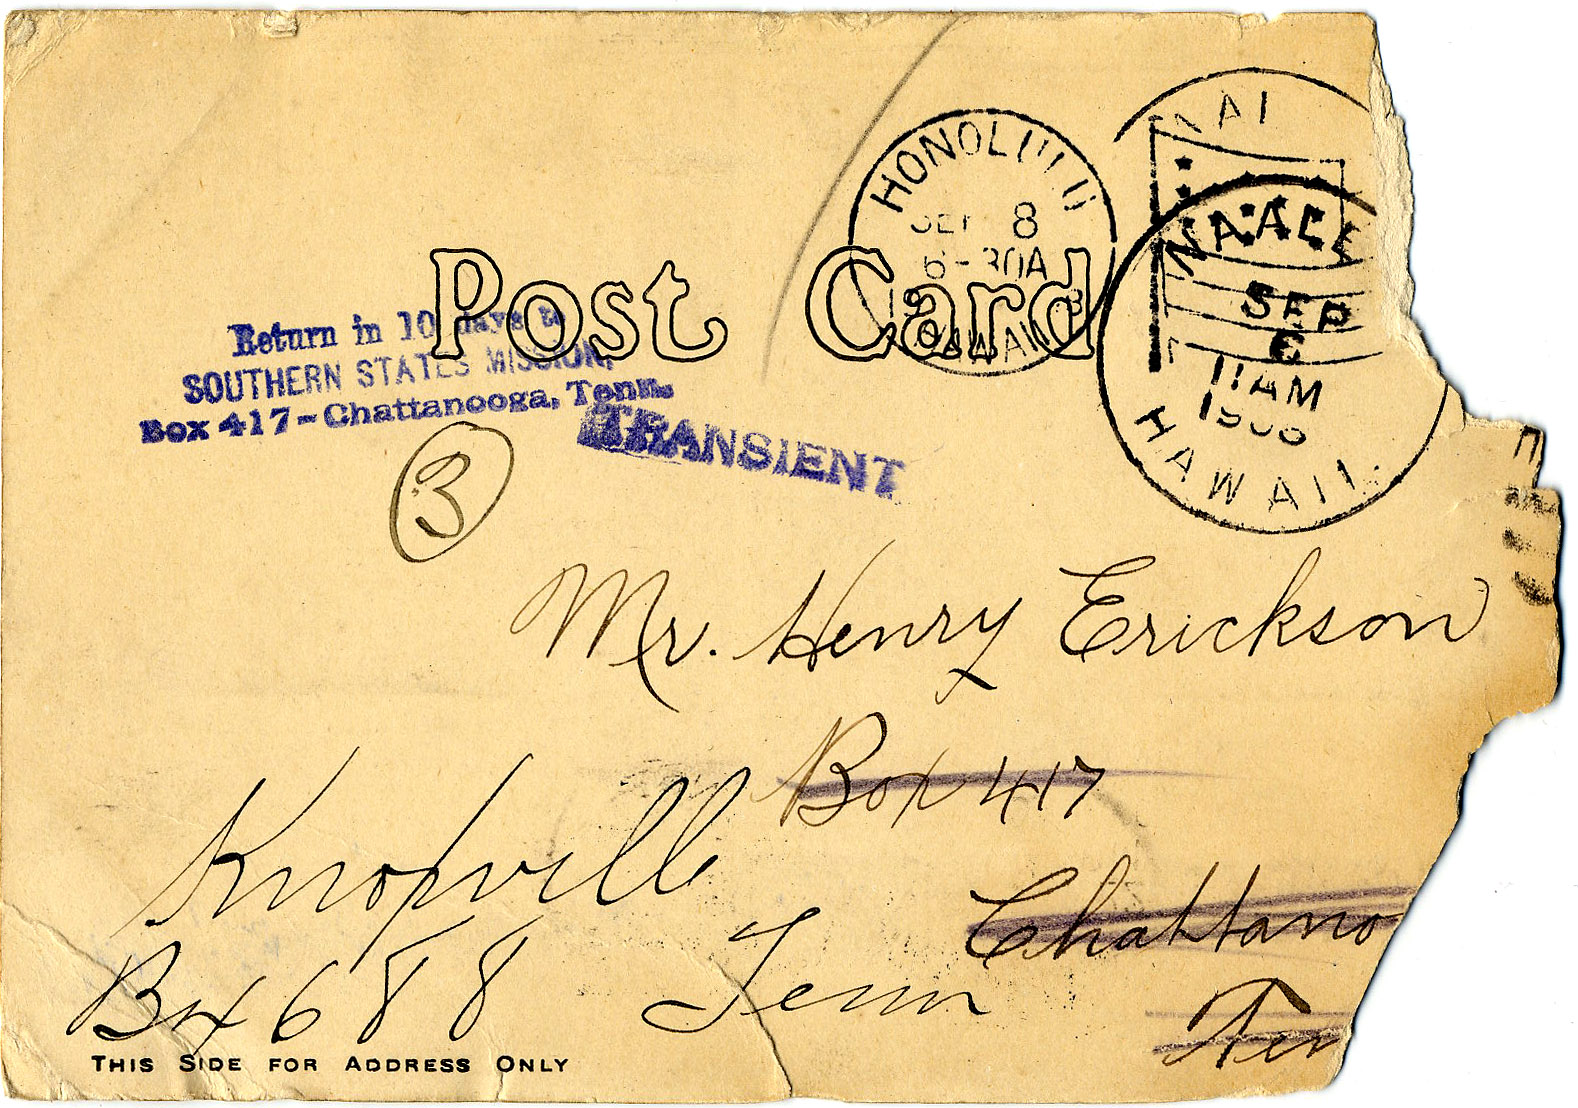 Post Card
HONOLULU
SEP 8
6-30A
HAWAII
NAALE
SEP
6
11AM
1906
HAWAII.
Return in 10 days to
SOUTHERN STATES MISSION,
Box 417-Chattanooga, Tenn.
TRANSIENT
3
Mr. Henry Erickson
Box 417
Chattano
Ten
Knoxville
Box 688 Tenn
THIS SIDE FOR ADDRESS ONLY